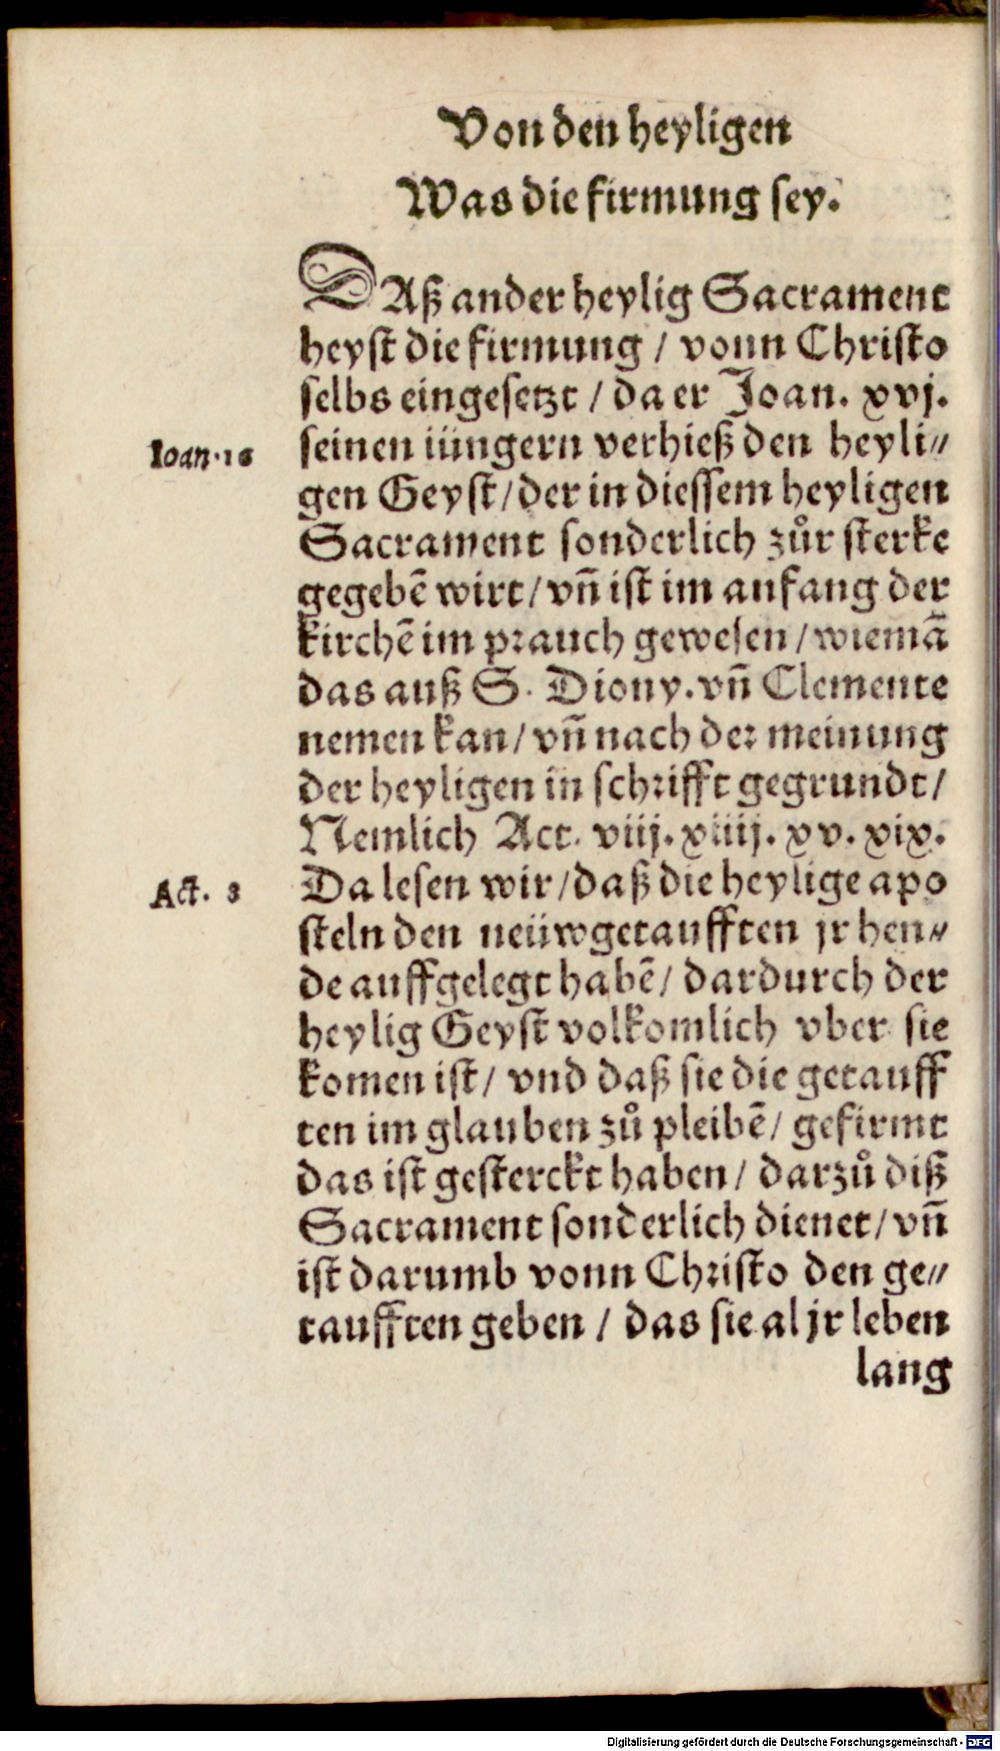 Von den heyligen
Was die firmung sey.
DAß ander heylig Sacrament
heyst die firmung / vonn Christo
selbs eingesetzt / da er Joan. xvj.
Ioan. 16
seinen iüngern verhieß den heyli⸗
gen Geyst / der in diessem heyligen
Sacrament sonderlich zůr sterke
gegebẽ wirt / vñ ist im anfang der
kirchẽ im prauch gewesen / wie mã
das auß S. Diony. vñ Clemente
nemen kan / vñ nach der meinung
der heyligen in schrifft gegrundt /
Nemlich Act. viij. xiiij. xv. xix.
Act. 8
Da lesen wir / daß die heylige apo
steln den neüwgetaufften jr hen⸗
de auffgelegt habẽ / dardurch der
heylig Geyst volkomlich vber sie
komen ist / vnd daß sie die getauff
ten im glauben zů pleibẽ / gefirmt
das ist gesterckt haben / darzů diß
Sacrament sonderlich dienet / vñ
ist darumb vonn Christo den ge⸗
taufften geben / das sie al jr leben
lang
Digitalisierung gefördert durch die Deutsche Forschungsgemeinschaft - DFG